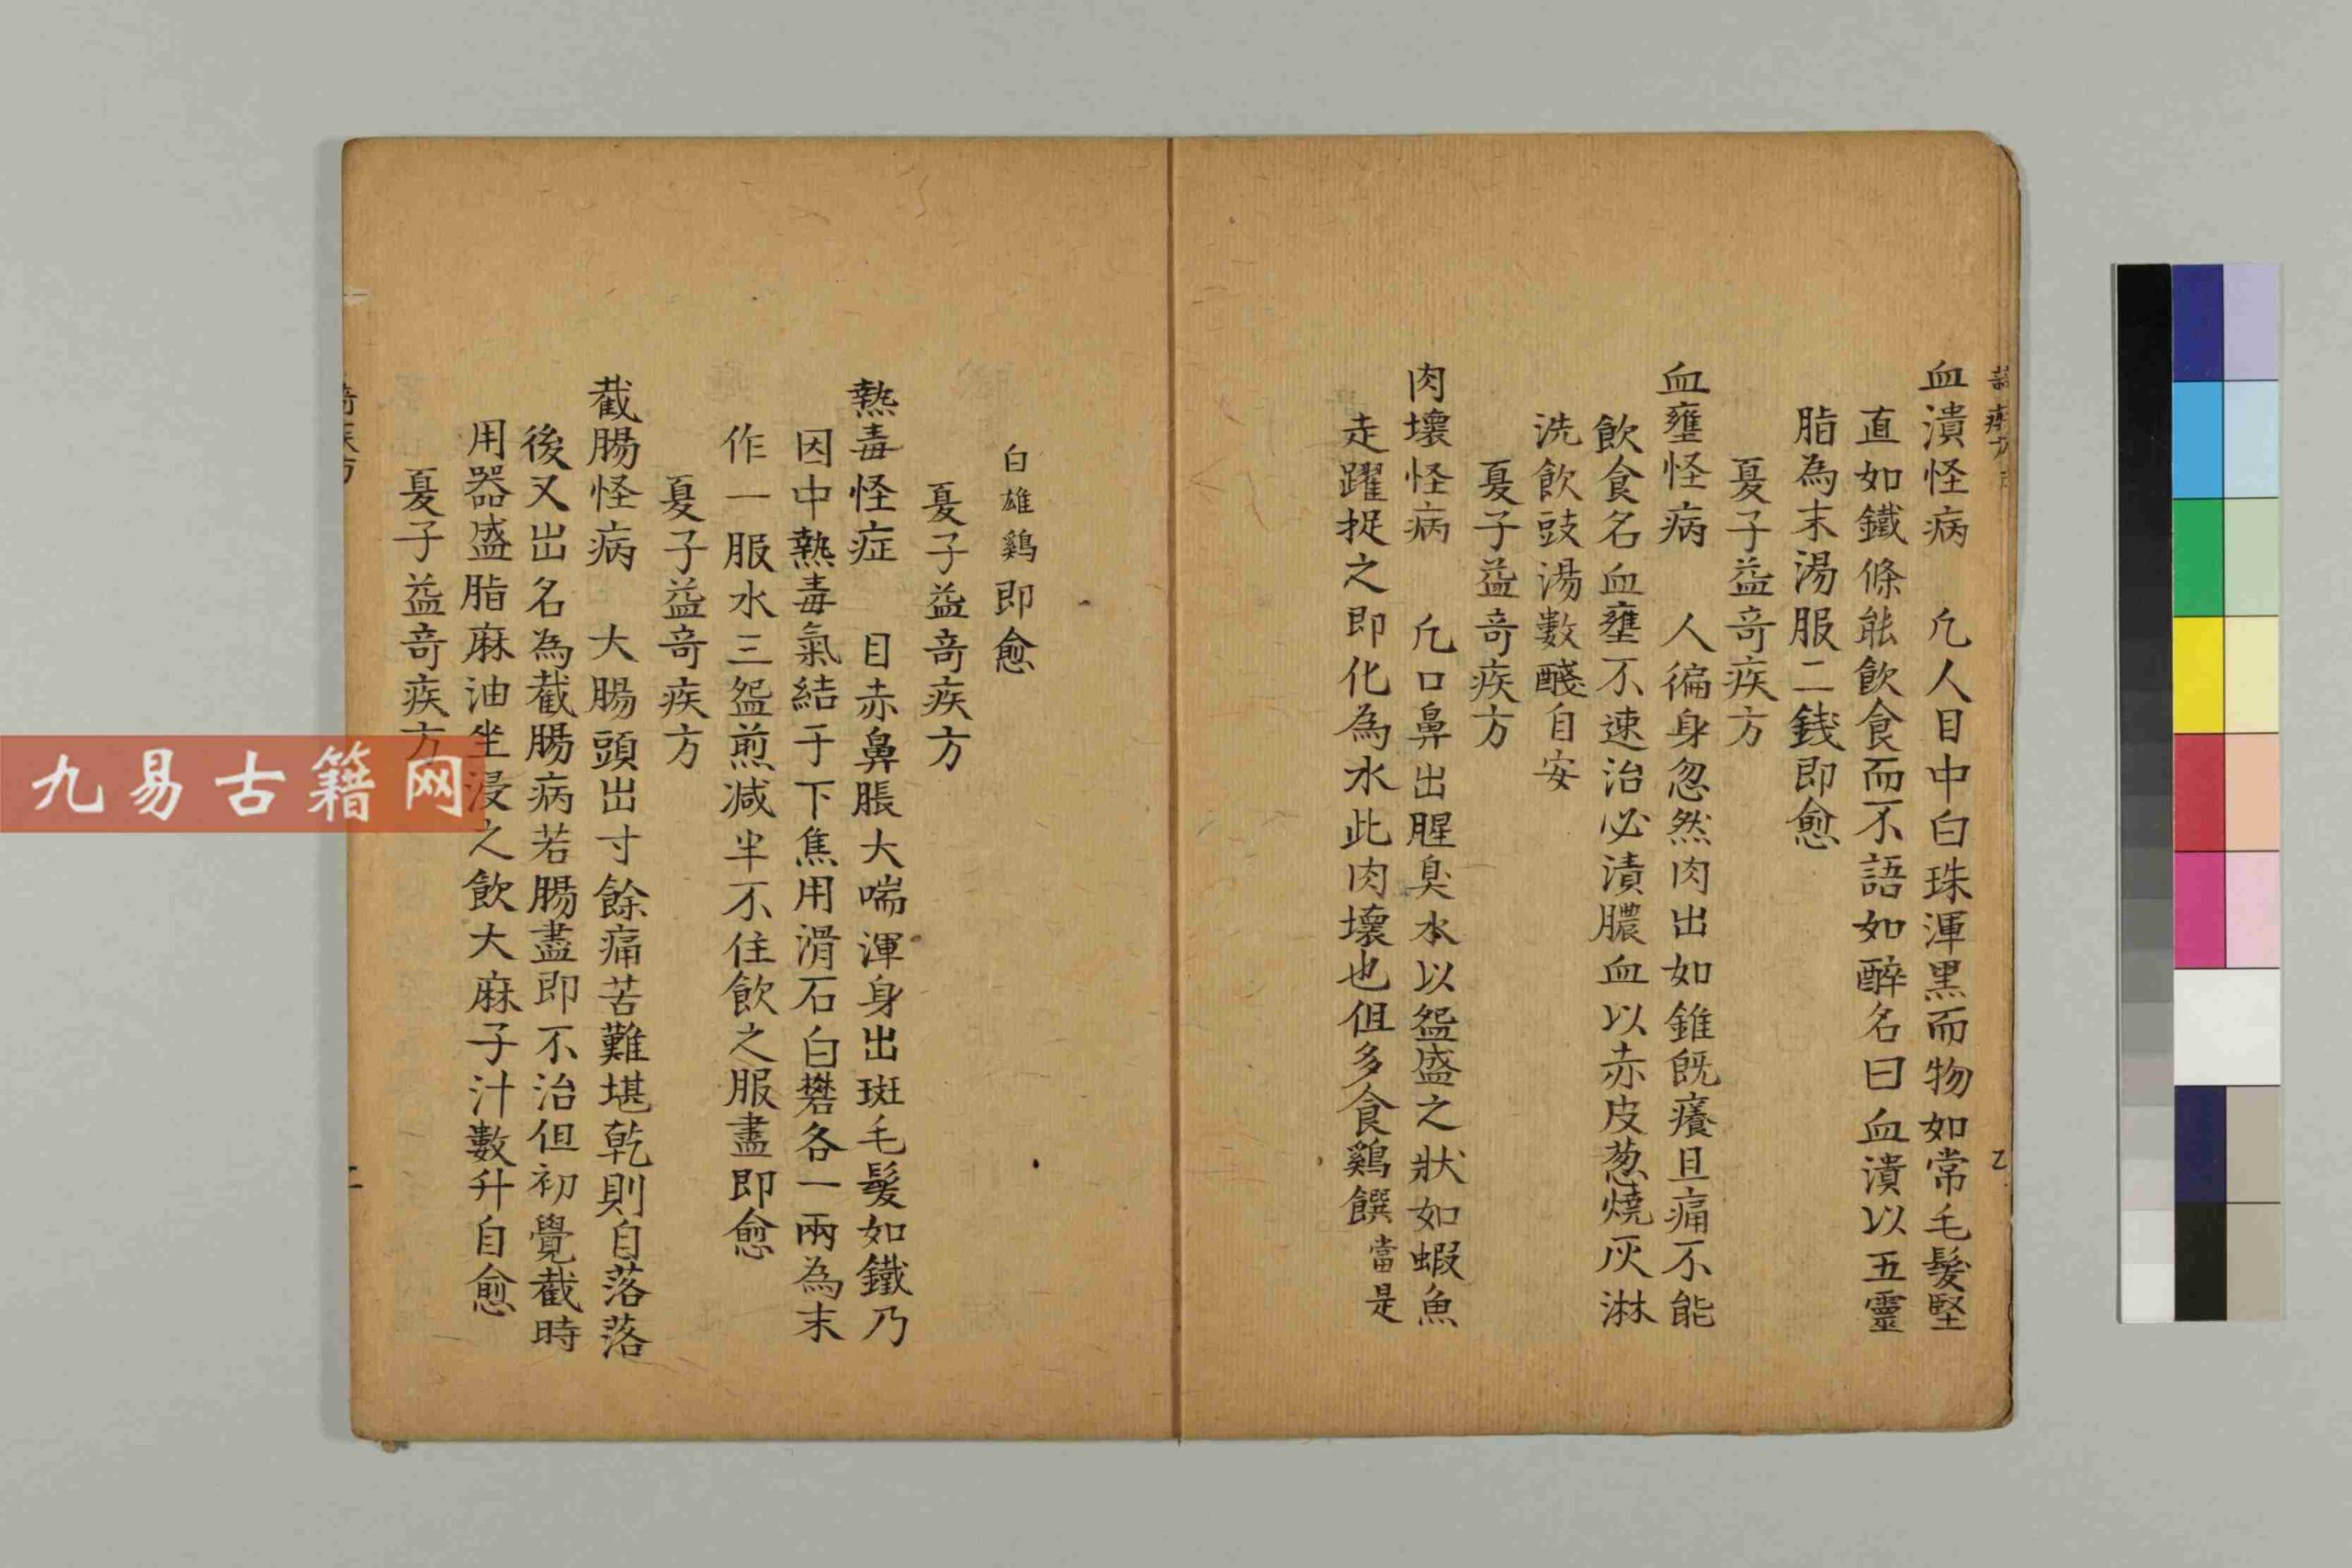 血潰怪病　凡人目中白珠渾黒而物如常毛髮堅
直如鐵條能飲食而不語如醉名曰血潰以五靈
脂為末湯服二錢即愈
夏子益奇疾方
血壅怪病　人徧身忽然肉出如錐既癢且痛不能
飲食名血壅不速治必漬膿血以赤皮葱燒灰淋
洗飲豉湯數醆自安
夏子益奇疾方
肉壞怪病　凡口鼻出腥臭水以盌盛之狀如蝦魚
走躍捉之即化為水此肉壞也但多食鷄饌當是
白雄鷄即愈
夏子益奇疾方
熱毒怪症　目赤鼻脹大喘渾身出斑毛髮如鐵乃
因中熱毒氣結于下焦用滑石白礬各一兩為末
作一服水三盌煎减半不住飲之服盡即愈
夏子益奇疾方
截腸怪病　大腸頭出寸餘痛苦難堪乾則自落落
後又出名為截腸病若腸盡即不治但初覺截時
用器盛脂麻油坐浸之飲大麻子汁數升自愈
夏子益奇疾方
九易古籍网